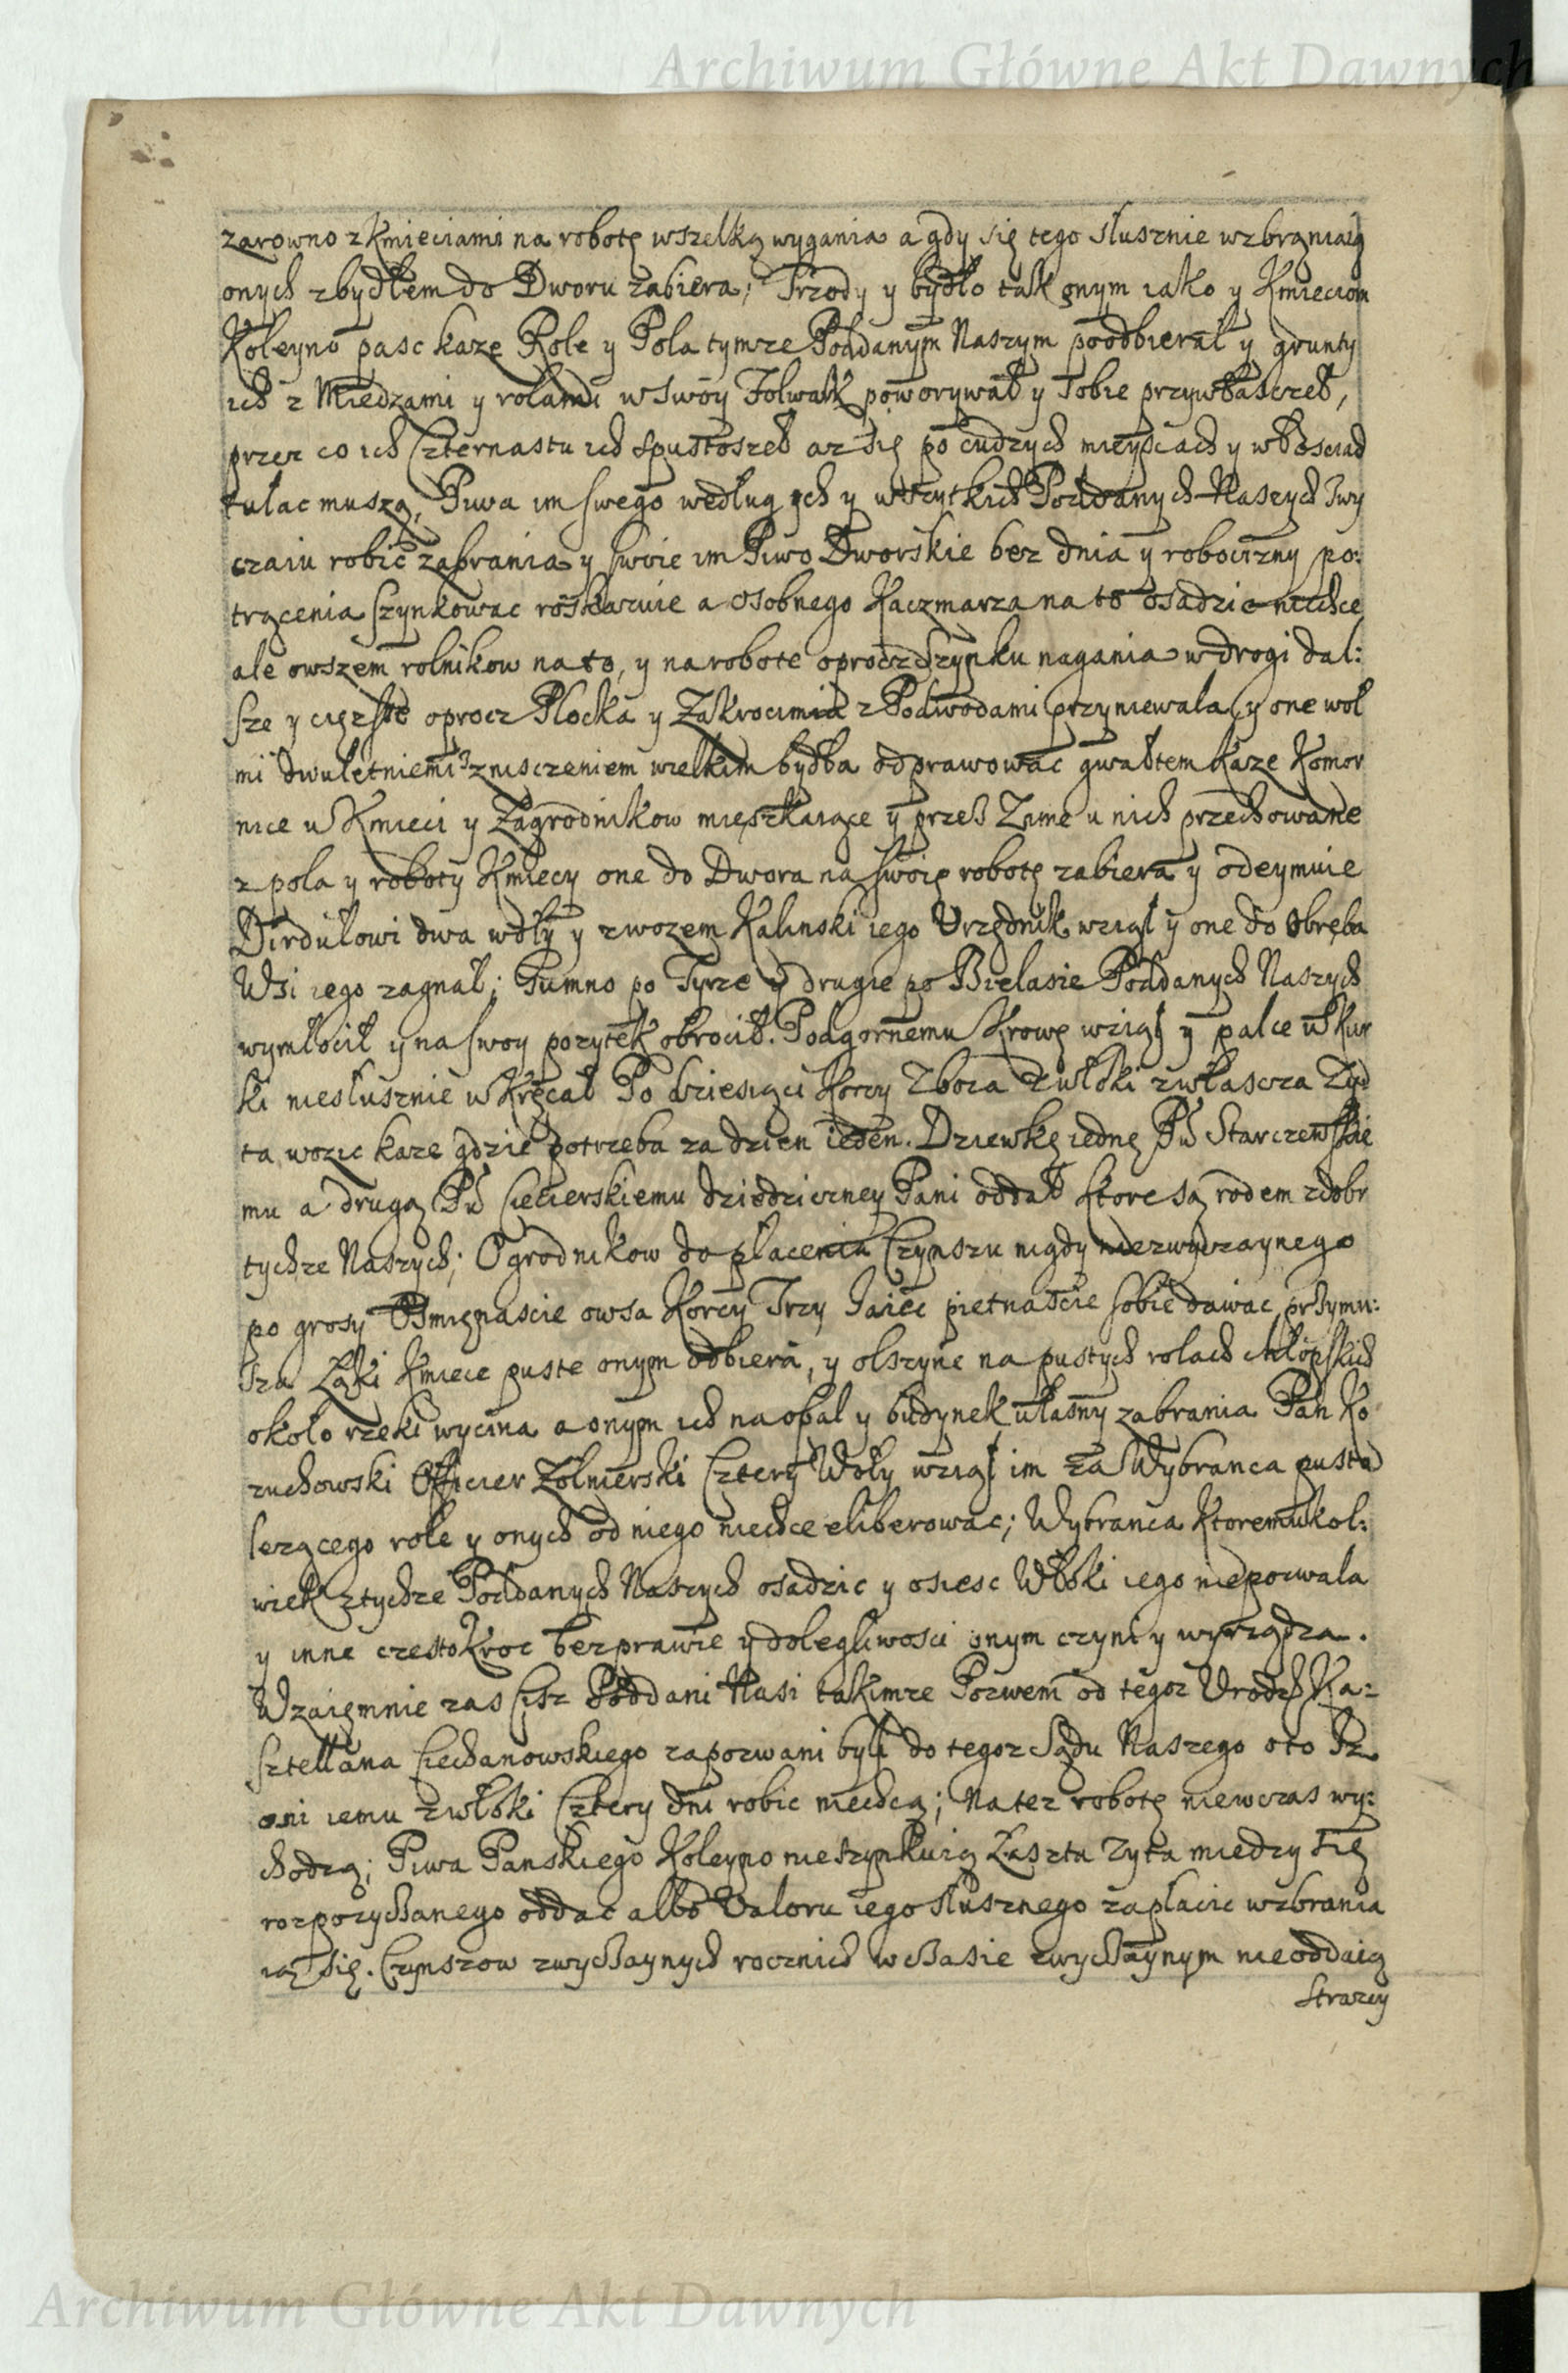 Archiwum Główne Akt Dawnych
zarowno z Kmieciami na robotę wszelką wygania a gdy się tego slusznie wzbraniaią
onych z bydłem do Dworu zabiera; Trzody y bydło tak onym iako y Kmieciom
Koleyno pasc kaze Role y Pola tymze Poddanym Naszym poodbierał y grunty
ich z Miedzami y rolami w swoy Folwark poworywał y sobie przywłasczeł,
przez co ich Czternastu ich spustoszeł az się po cudzych mieyscach y włosciach
tułac muszą, Piwa im swego według ych y wszytkich Poddanych Naszych zwy
czaiu robic zabrania y swoie im Piwo Dworskie bez dnia y robocizny po:
trącenia szynkowac roskazuie a osobnego Kaczmarza na to osadzic niechce
ale owszem rolnikow na to, y na robote oprocz Szynku nagania w drogi dal:
sze y częste oprocz Płocka y Zakrocimia z Podwodami przyniewala, y one woł
mi dwuletniemi z znisczeniem wielkim bydła odprawowac gwałtem kaze Komor
nice u Kmieci y Zagrodnikow mieszkaiące y przes Zime u nich przechowane
z pola y roboty Kmiecy one do Dwora na swoię robotę zabiera y odeymuie
Dirdułowi dwa woły y z wozem Kalinski iego Urzędnik wziął y one do Obręba
Wsi iego zagnał; Gumno po Tyrze y drugie po Bielasie Poddanych Naszych
wymłocił y na swoy pozytek obrocił. Podgornemu Krowę wziął y palce w Kur
ki niesłusznie wkręcał Po dziesiąci Korcy Zboza z włoki zwłascza Zy
ta wozic kaze gdzie potrzeba za dzien ieden. Dziewkę iednę Pu Starczewskie
mu a drugą Pu Ciecierskiemu dziedziczney Pani oddał ktore są rodem z dobr
tychze Naszych; Ogrodnikow do płacenia Czynszu nigdy niezwyczaynego
po groszy Osmięnascie owsa Korcy Trzy Jaiec pietnascie sobie dawac przymu:
sza Łąki Kmiece puste onym odbiera, y olszyne na pustych rolach chłopskich
około rzeki wycina a onym ich na opał y budynek własny zabrania Pan Ko
zuchowski Officier Zołnierski Cztery Woły wziął im za Wybranca pusta
lezącego role y onych od niego niechce eliberowac; Wybranca Ktoremukol:
wiek z tychze Poddanych Naszych osadzic y osiesc Włoki iego niepozwala
y inne czestokroc bezprawie y dolegliwosci onym czyni y wyrządza.
Wzaiemnie zas Ciz Poddani Nasi takimze Pozwem od tegoz Urodz Ka:
sztellana Ciechanowskiego zapozwani byli do tegoz Sądu Naszego oto Iz
oni iemu z włoki Cztery dni robic niechcą; Na tez robotę niewczas wy:
chodzą; Piwa Panskiego Koleyno nieszynkuią Łaszta Zyta miedzy się
rozpozychanego oddac albo Waloru iego slusznego zapłacic wzbrania
ią się. Czynszow zwyczaynych rocznich w czasie zwyczaynym nieoddaią
Strazy
Archiwum Główne Akt Dawnych